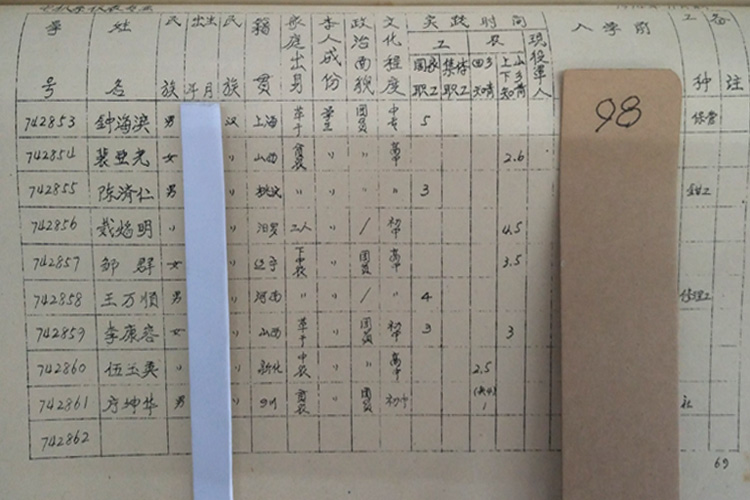 学号 姓名 民族 出生年月 民族 籍贯 家庭出身 本人成份 政治面貌 文化程度 实践时间 现役军人 入学前 工种 备注
工 农
国家职工 集体职工 回乡知青 上山下乡知青
742853 钟海滨 男 汉 上海 革干 学生 团员 中专 5 保管
742854 裴 光 女 〃 山西 贫农 〃 〃 高中 2.6
742855 陈济仁 男 〃 〃 〃 〃 〃 3 钳工
742856 戴焰明 〃 〃 汨罗 工人 〃 / 初中 4.5
742857 邹群 女 〃 辽宁 下中农 〃 团员 高中 3.5
742858 王万顺 男 〃 河南 〃 〃 / 〃 4 修理工
742859 李康容 女 〃 山西 革干 〃 团员 初中 3 3
742860 伍玉英 〃 〃 新化 中农 〃 〃 高中 2.5
742861 华 男 〃 贫农 〃 团员 初中 1 社
742862
98
69